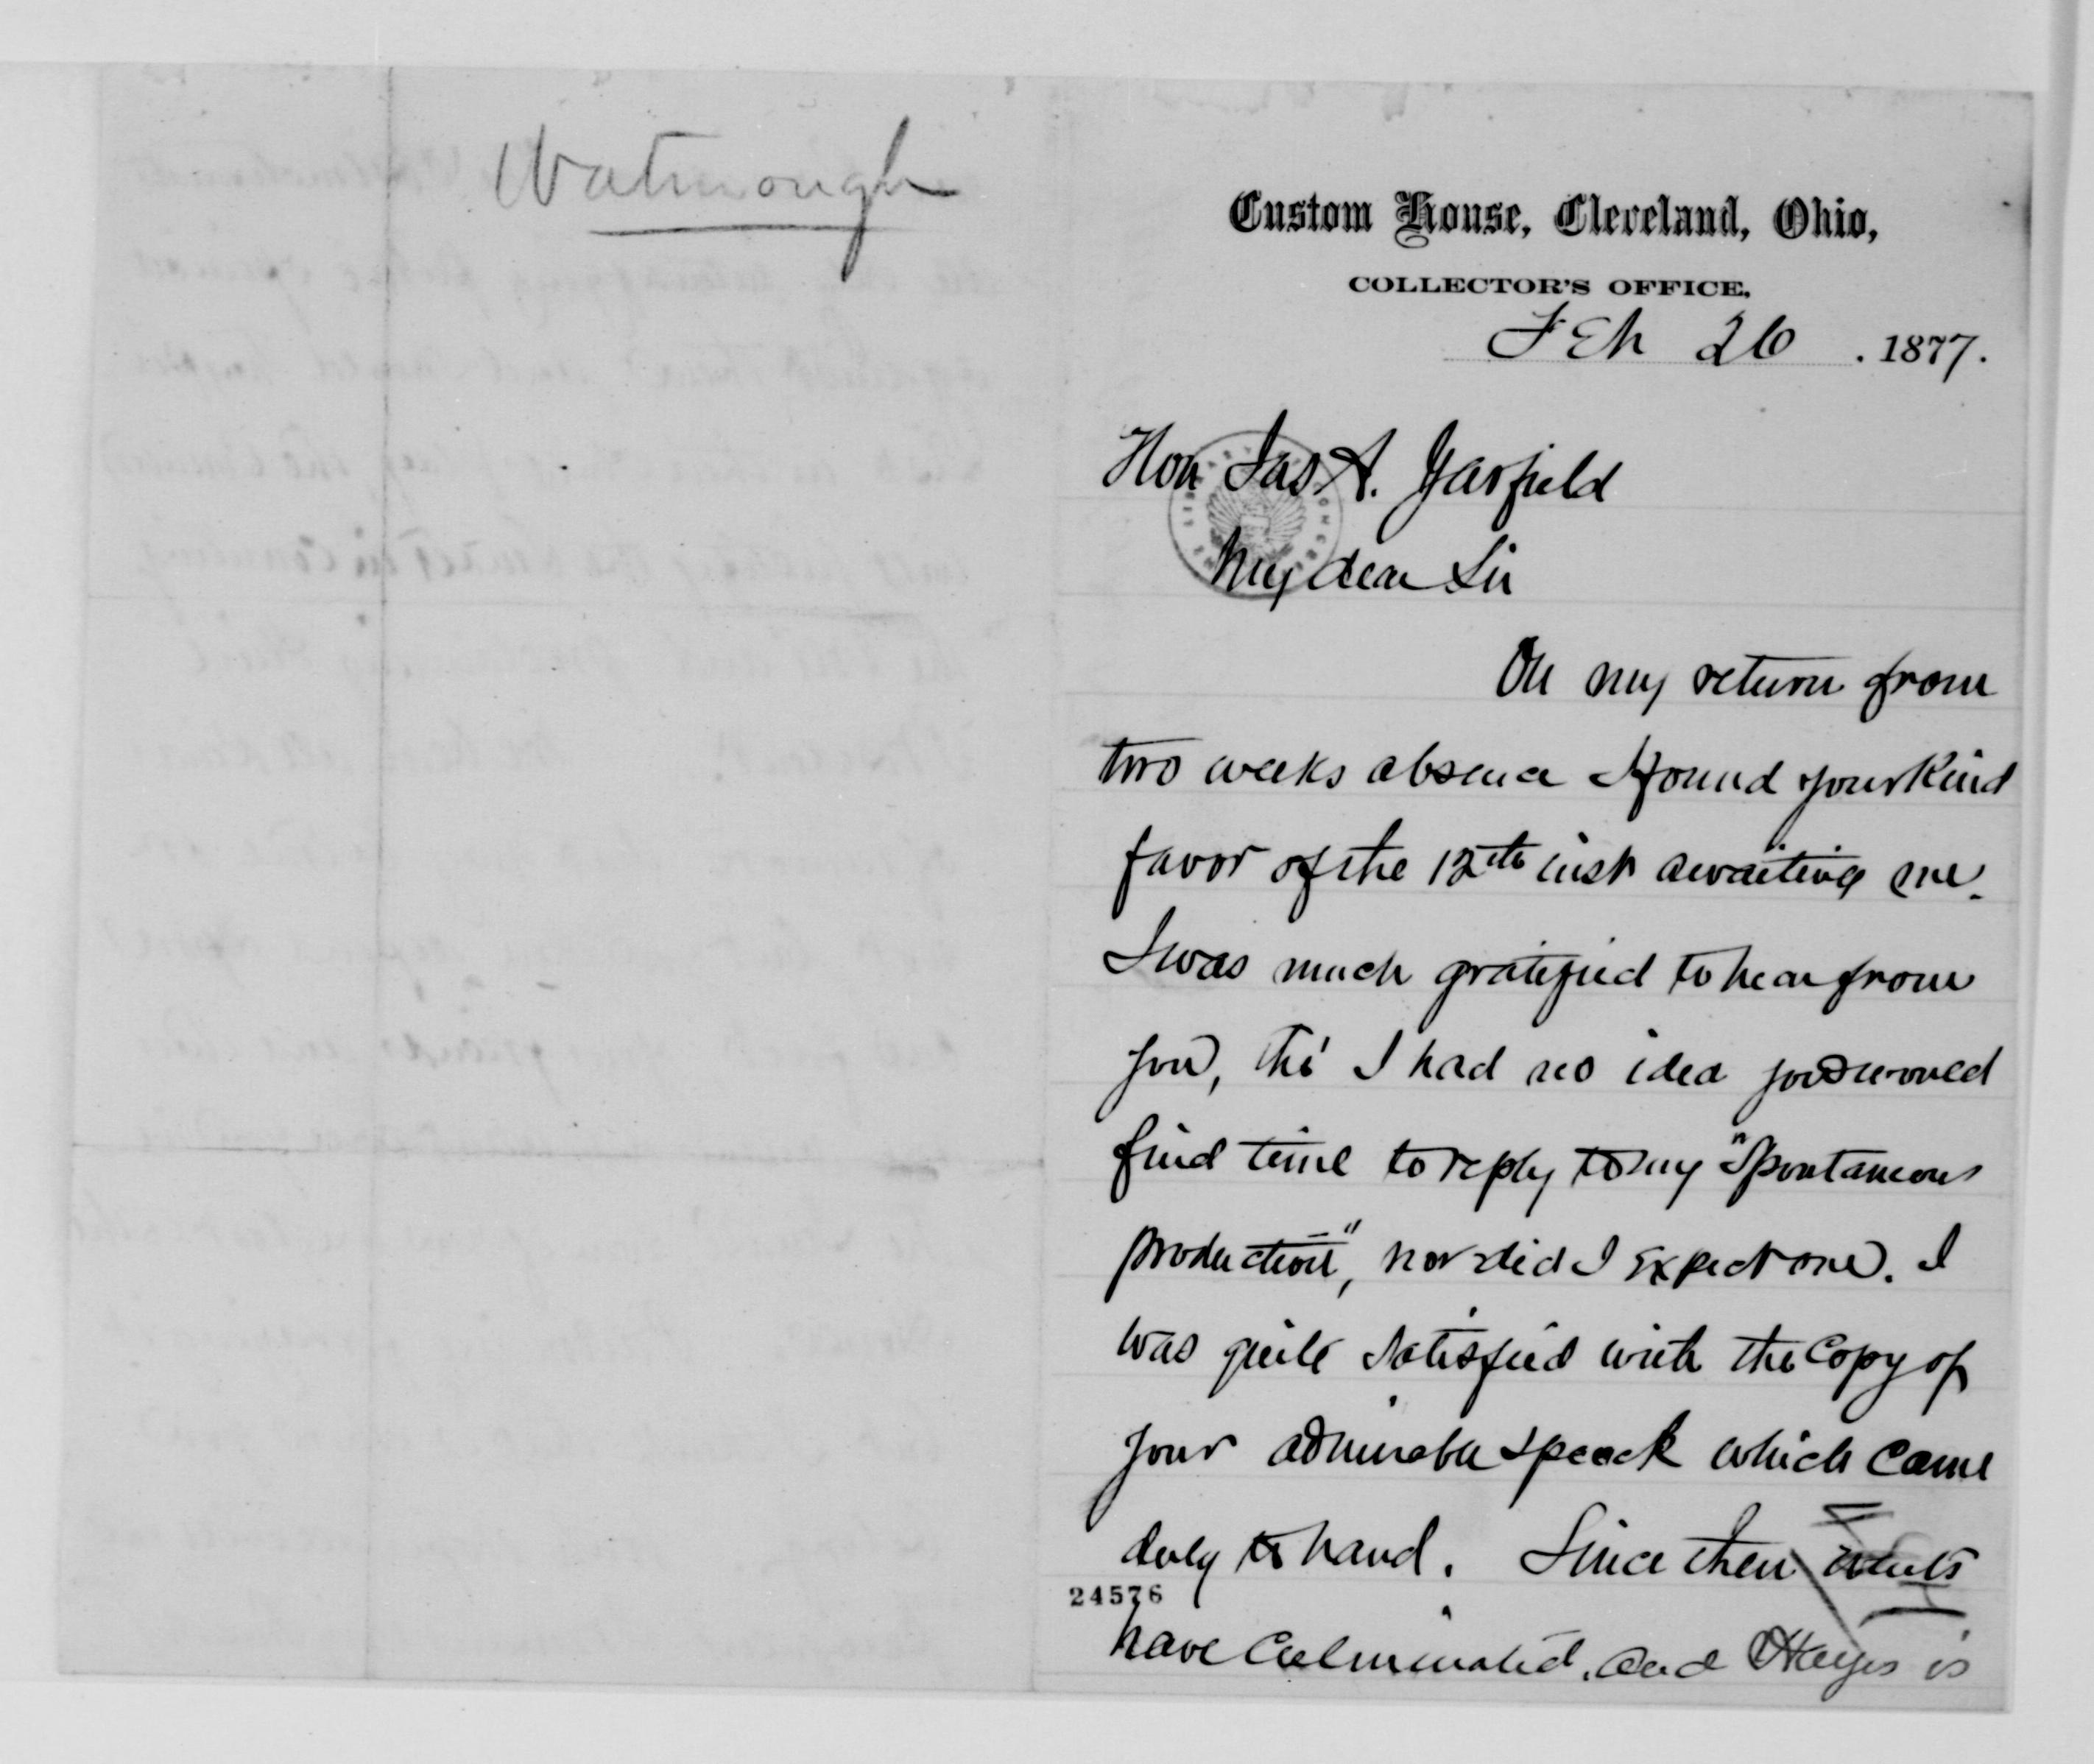 Watmough
Custom House, Cleveland, Ohio,
COLLECTOR'S OFFICE,
Feb 26. 1877.
Hon Jas A. Garfield
My dear Sir
On my return from
two weeks absence I found your kind
favor of the 12th inst awaiting me.
I was much gratified to hear from
you, tho' I had no idea you would
find time to reply to my "Spontaneous
production", nor did I expect one. I
was quite satisfied with the Copy of
your admirable speech which came
duly to hand. Since then events
24576
have Culminated, and Hayes is